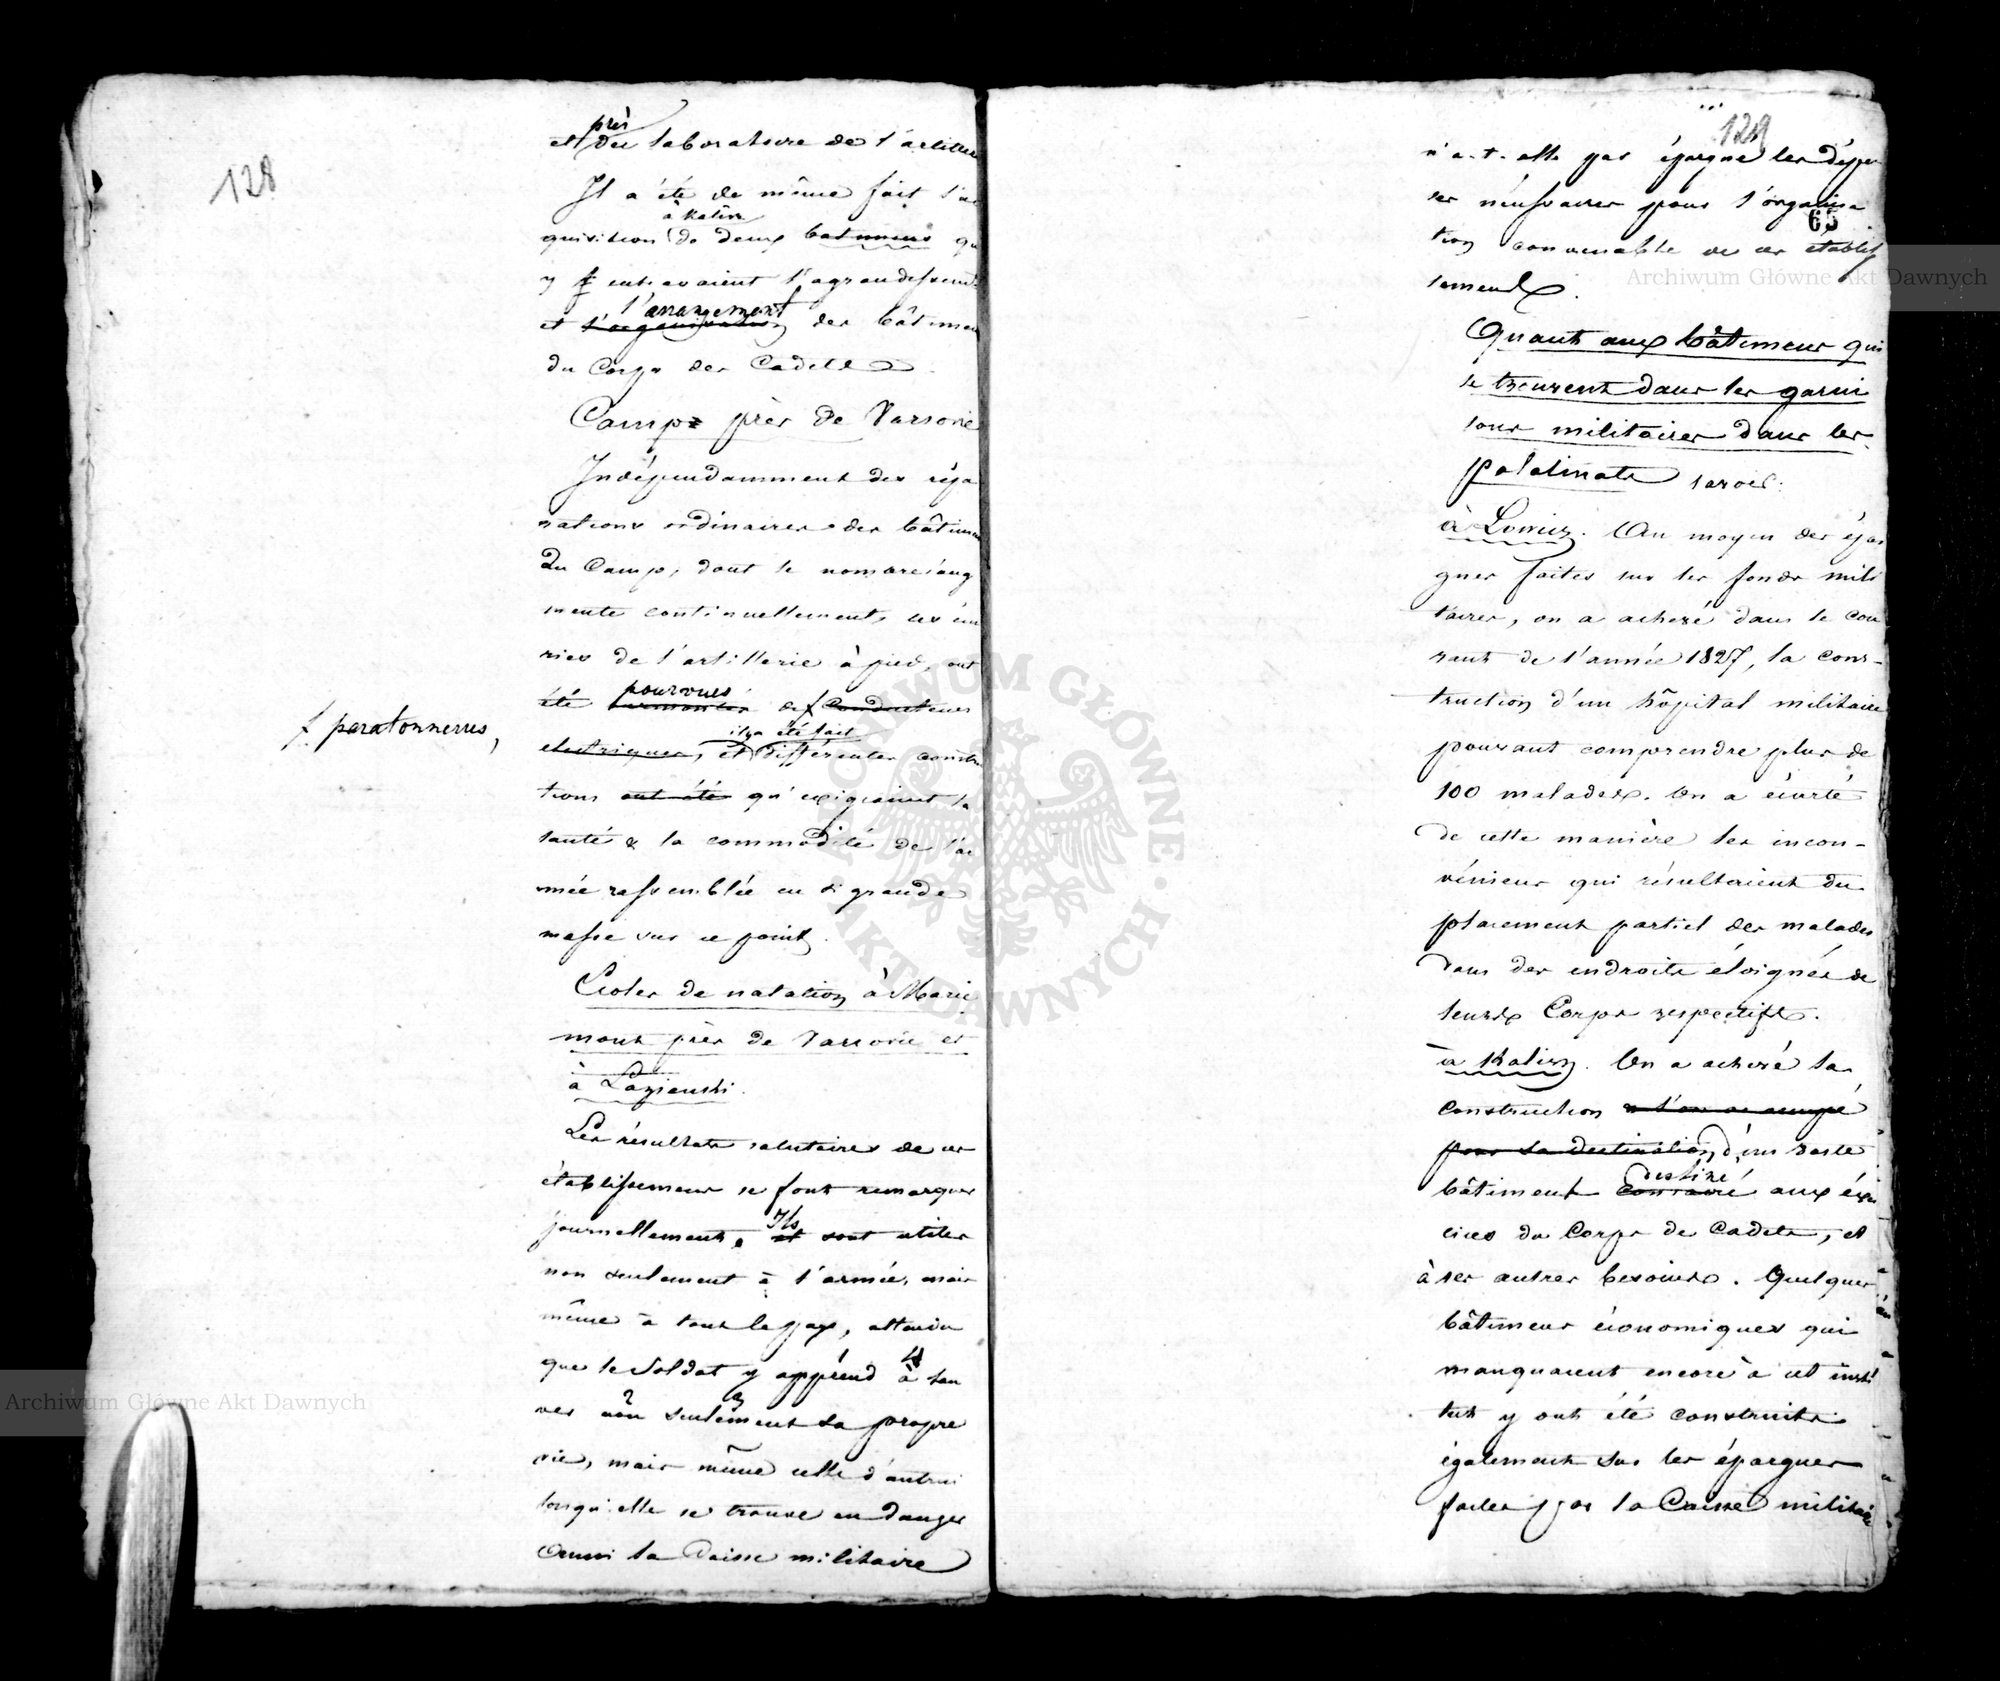 128
près
et du laboratoire de l'artillerie
Il a été de même fait l'ac
à Kalisz
quisition de deux batimens qu
y entravaient l'agrandissement
l'arrangement
et l'organisation des bâtimens
du Corps des Cadets
Camp près de Varsovie
Indépendamment des répa
rations ordinaires des bâtimens
du Camp, dont le nombre s'aug
mente continuellement, les écu
ries de l'artillerie à pied, ont
pourvues
été des conducteurs
f. paratonnerres,
il y a été fait
electriques, et différentes construc
tions ont été qu'exigeaient la
santé & la commodité de l'ar
mée rassemblée en si grande
masse sur ce point.
Ecoles de natation à Marie
mont près de Varsovie et
à Lazienski.
Les résultats salutaires de ces
établissemens se font remarquer
Ils
journellement, et sont utiles
non seulement à l'armée, mais
même à tout le pays, attendu
4
que le Soldat y apprend à sau
2 3
ver non seulement sa propre
vie, mais même celle d'autrui
lorsqu'elle se trouve en danger
Aussi la Caisse militaire
129
n'a-t-elle pas épargné les dépen
ses nécessaires pour l'organisa
65
tion convenable de ces établis
semens.
Quant aux bâtimens qui
se trouvent dans les garni
sons militaires dans les
palatinats savoir:
à Lowicz. Au moyen des épar
gnes faites sur les fonds mili
taires, on a achevé dans le cou
rant de l'année 1827, la cons-
truction d'un hôpital militaire
pouvant comprendre plus de
100 malades. On a écarté
de cette manière les incon-
vénients qui résultaient du
placement partiel des malades
dans des endroits éloignés de
leurs Corps respectifs.
à Kalisz. On a achevé la
construction
pour sa destination d'un vaste
destiné
bâtiment consacré aux exer
cices du Corps de Cadets, et
à ses autres besoins. Quelques
bâtimens économiques qui
manquaient encore à cet insti
tut y ont été construits
également sur les épargnes
faites par la Caisse militaire
Archiwum Główne Akt Dawnych
Archiwum Główne Akt Dawnych
ARCHIWUM GŁÓWNE · AKT DAWNYCH ·